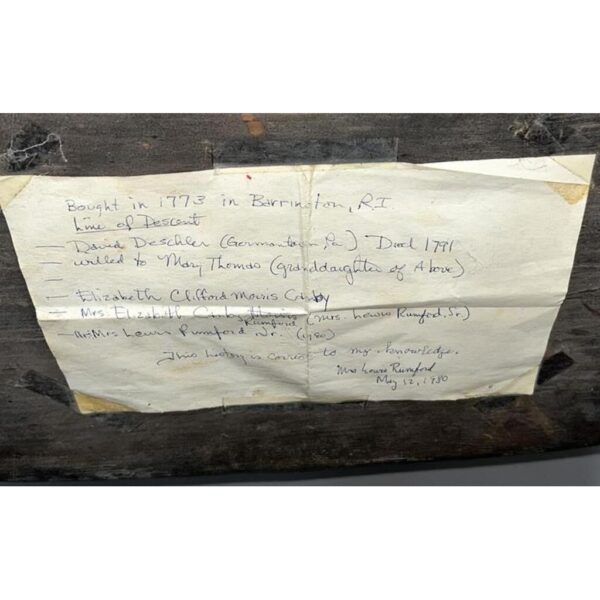 Bought in 1773 in Barrington, R.I.
Line of Descent
— David Deschler (Germantown, Pa) Died 1791
— willed to Mary Thomas (granddaughter of Above)
—
— Elizabeth Clifford Morris Canby
— Mrs Elizabeth Canby Morris Rumford (Mrs. Lewis Rumford, Sr.)
— Mr. Mrs Lewis Rumford Jr. (1980)
This history is correct to my knowledge.
Mrs Lewis Rumford
May 12, 1980